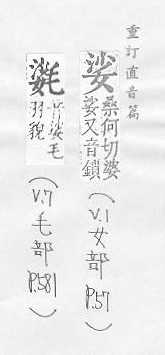 重訂直音篇
娑 桑何切婆
娑又音鎖
(V.1女部P.57)
毛
羽貌
(V.7毛部P.581)